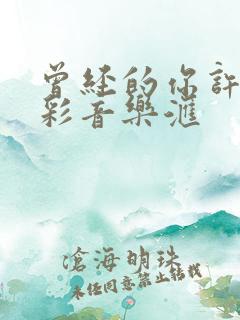 曾经的你許
彩音樂滙
滄海明珠
未经同意禁止转载